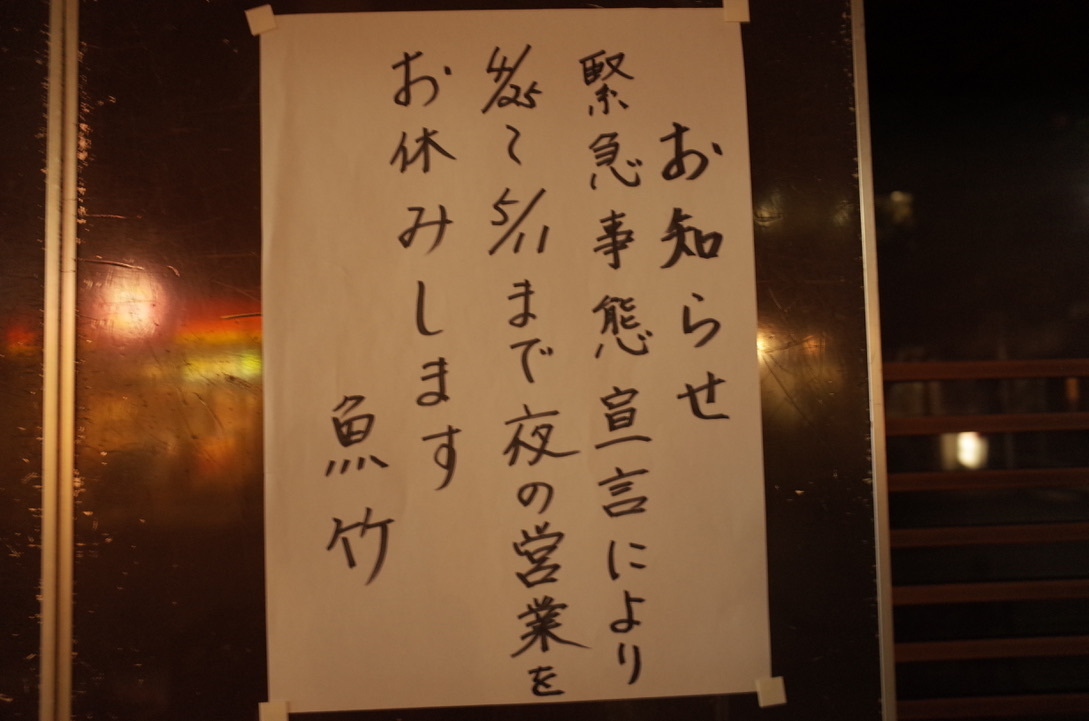 お知らせ
緊急事態宣言により
4/25〜5/11まで夜の営業を
お休みします
魚竹